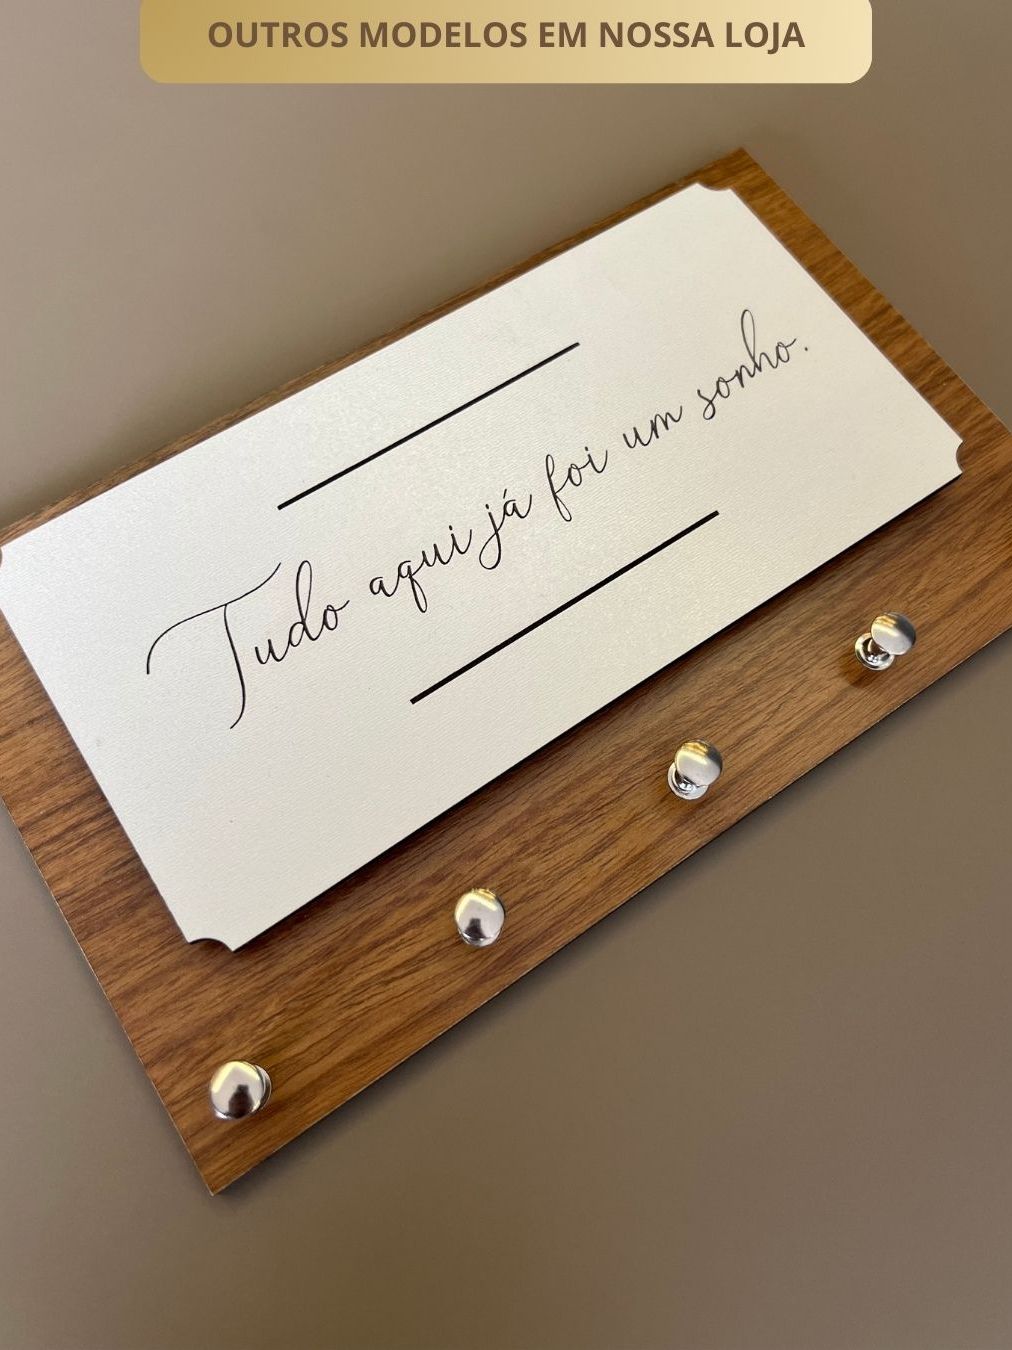 OUTROS MODELOS EM NOSSA LOJA
Tudo aqui já foi um sonho.